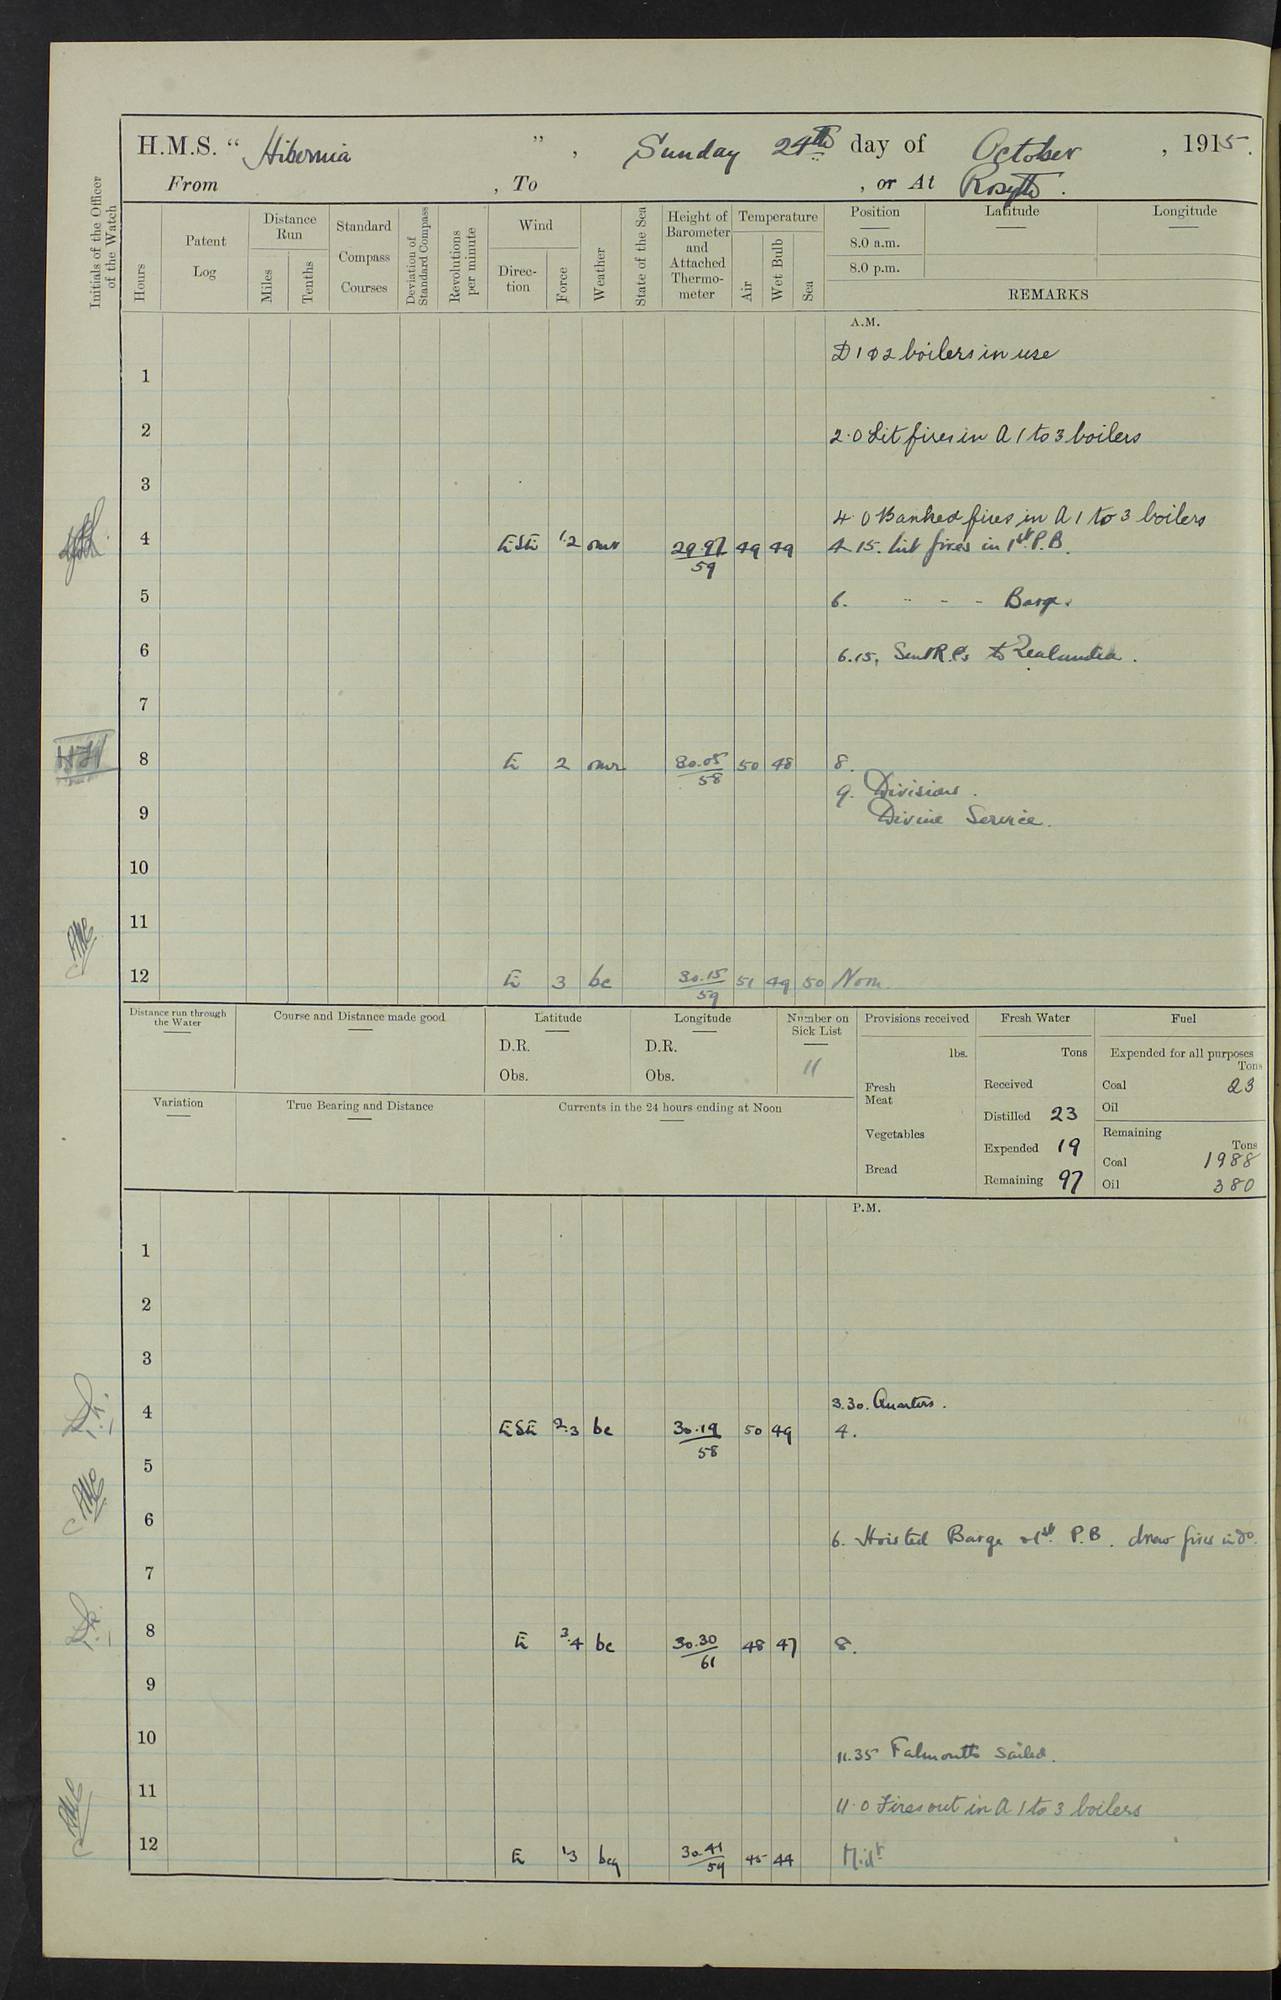 H.M.S. “ Hibernia ” , Sunday 24th day of October , 1915.
From , To , or At Rosyth .
Initials of the Officer of the Watch
Hours
Patent Log
Distance Run
Miles
Tenths
Standard Compass Courses
Deviation of Standard Compass
Revolutions per minute
Wind
Direction
Force
Weather
State of the Sea
Height of Barometer and Attached Thermometer
Temperature
Air
Wet Bulb
Sea
Position Latitude Longitude
8.0 a.m.
8.0 p.m.
REMARKS
A.M.
D 1 & 2 boilers in use
1
2 2.0 Lit fires in A 1 to 3 boilers
3
4.0 Banked fires in A 1 to 3 boilers
4 ESE 1.2 omr 29.97/59 49 49 4.15. Lit fires in 1st P.B.
5 6. - - - Barge.
6 6.15. Sent R.P.s to Zealandia .
7
8 E 2 omr 30.05/58 50 48 8.
9. Divisions .
9 Divine Service.
10
11
12 E 3 bc 30.15/59 51 49 50 Noon.
Distance run through the Water
Course and Distance made good
Latitude
D.R.
Obs.
Longitude
D.R.
Obs.
Number on Sick List
11
Provisions received
lbs.
Fresh Meat
Vegetables
Bread
Fresh Water
Tons
Received
Distilled 23
Expended 19
Remaining 97
Fuel
Expended for all purposes
Tons
Coal 23
Oil
Remaining
Tons
Coal 1988
Oil 380
Variation
True Bearing and Distance
Currents in the 24 hours ending at Noon
P.M.
1
2
3
4 3.30. Quarters.
ESE 2.3 bc 30.19/58 50 49 4.
5
6 6. Hoisted Barge & 1st P.B. drew fires in do.
7
8 E 3.4 bc 30.30/61 48 47 8.
9
10 11.35 Falmouth sailed.
11 11.0 Fires out in A 1 to 3 boilers
12 E 1.3 bcq 30.41/59 45 44 Midt